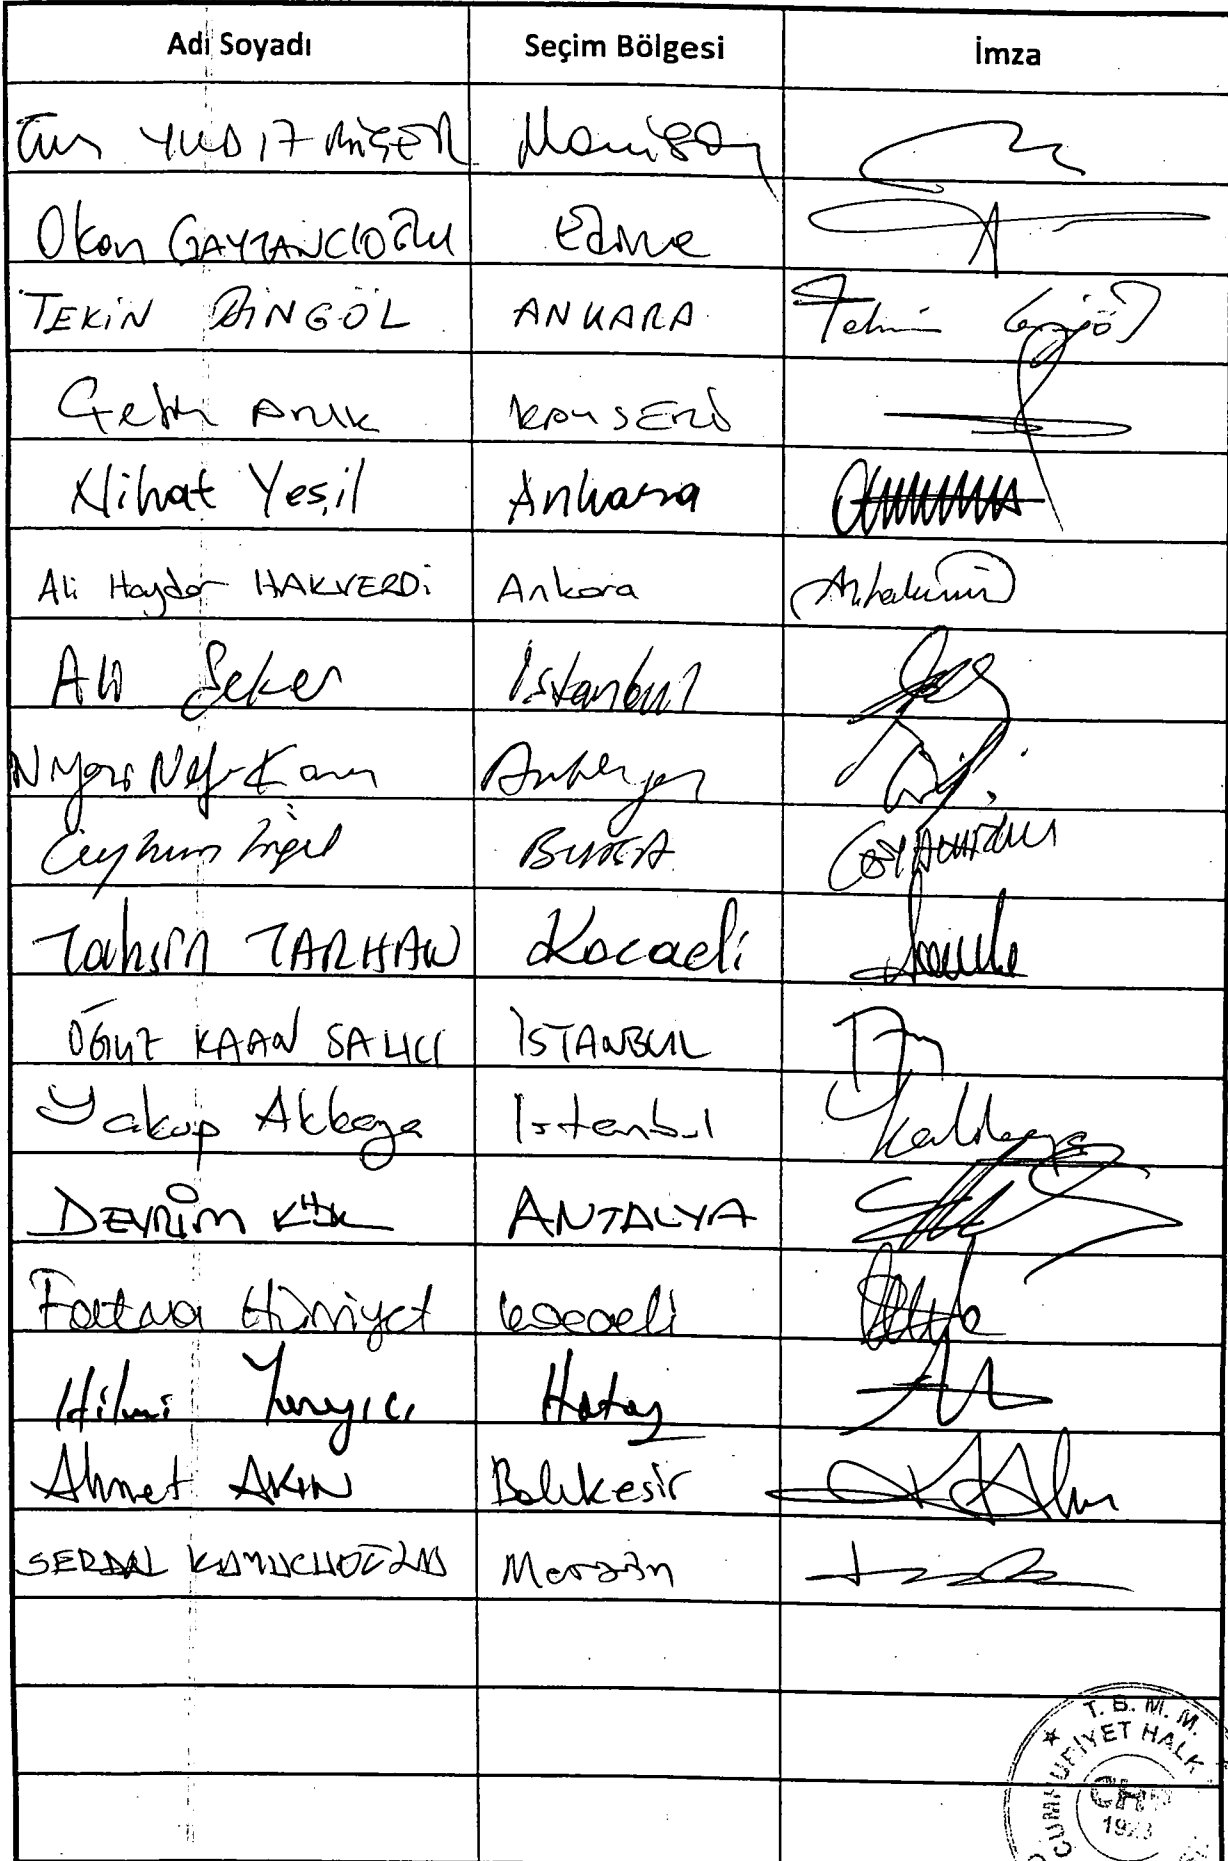 Adı Soyadı Seçim Bölgesi İmza
YILDIZ BİÇER Manisa
Okan GAYTANCIOĞLU Edirne
TEKİN BİNGÖL ANKARA Tekin Bingöl
Çetin ARIK KAYSERİ
Nihat Yeşil Ankara
Ali Haydar HAKVERDİ Ankara
Ali Şeker İstanbul
Niyazi Nefi Kara Antalya
Ceyhun İrgil BURSA
Tahsin TARHAN Kocaeli
OĞUZ KAAN SALICI İSTANBUL
Yakup Akkaya İstanbul
DEVRİM KÖK ANTALYA
Fatma Hürriyet Kocaeli
Hilmi Yarayıcı Hatay
Ahmet AKIN Balıkesir
SERDAL KUYUCUOĞLU Mersin
T. B. M. M.
CUMHURİYET HALK
CHP
1923